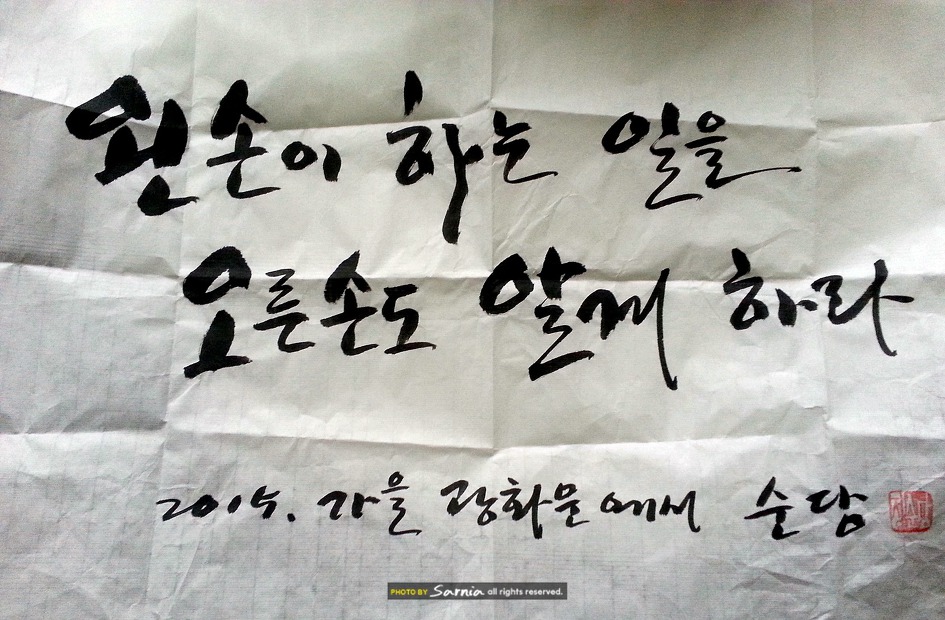 왼손이 하는 일을
오른손도 알게 하라
2015. 가을 광화문에서 순담
PHOTO BY Sarnia all rights reserved.